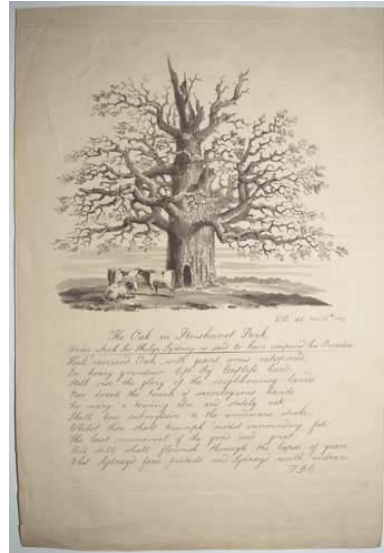 The Oak in Penshurst Park
Under which Sir Philip Sydney is said to have composed his Arcadia
Hail reverend Oak, with giant arms outspread
In hoary grandeur lift thy leafless head
Still rise the glory of the neighbouring lands
Nor dread the touch of sacrilegious hands
For many a towering elm and stately oak
Shall bow submissive to the woodmans stroke
Whilst thou shalt triumph 'midst surrounding fate
The last memorial of the good and great
And still shalt flourish through the lapse of years
Whilst Sydney's fame and Sydney's worth